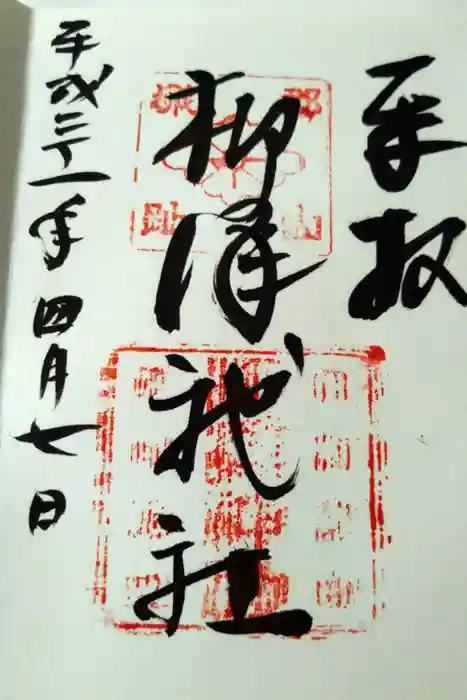 奉拝
郡山
柳澤神社
平成三十一年四月七日